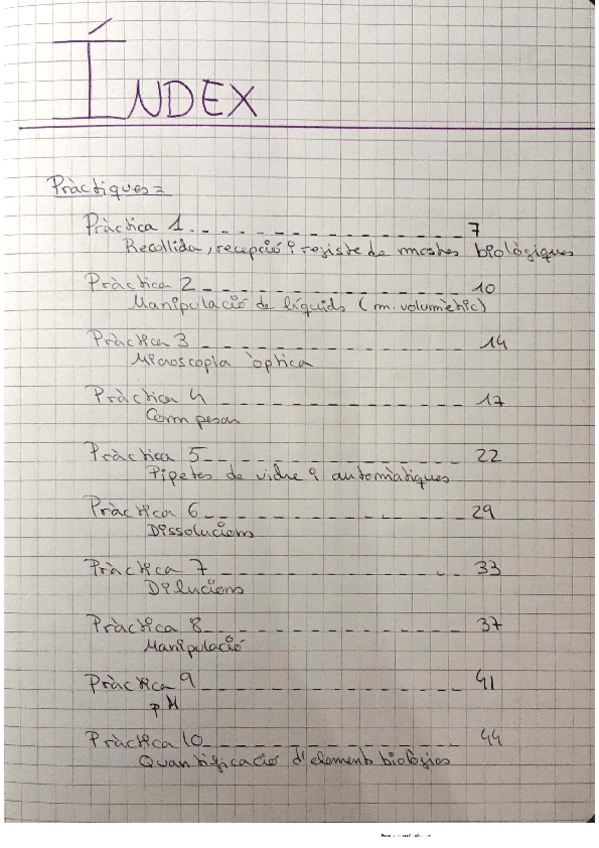 ÍNDEX
Pràctiques=
Pràctica 1. _ _ _ _ _ _ _ _ _ _ _ _ _ _ 7
Recollida, recepció i registe de mostres biològiques
Pràctica 2 _ _ _ _ _ _ _ _ _ _ _ _ _ _ 10
Manipulació de líquids (m. volumètric)
Pràctica 3 _ _ _ _ _ _ _ _ _ _ _ _ _ _ 14
Microscopia òptica
Pràctica 4 _ _ _ _ _ _ _ _ _ _ _ _ _ _ 17
Com pesar
Pràctica 5 _ _ _ _ _ _ _ _ _ _ _ _ _ _ 22
Pipetes de vidre i automàtiques
Pràctica 6 _ _ _ _ _ _ _ _ _ _ _ _ _ _ 29
Dissolucions
Pràctica 7 _ _ _ _ _ _ _ _ _ _ _ _ _ _ 33
Dilucions
Pràctica 8 _ _ _ _ _ _ _ _ _ _ _ _ _ _ 37
Manipulació
Pràctica 9 _ _ _ _ _ _ _ _ _ _ _ _ _ _ 41
pH
Pràctica 10 _ _ _ _ _ _ _ _ _ _ _ _ _ _ 44
Quantificació d'elements biològics